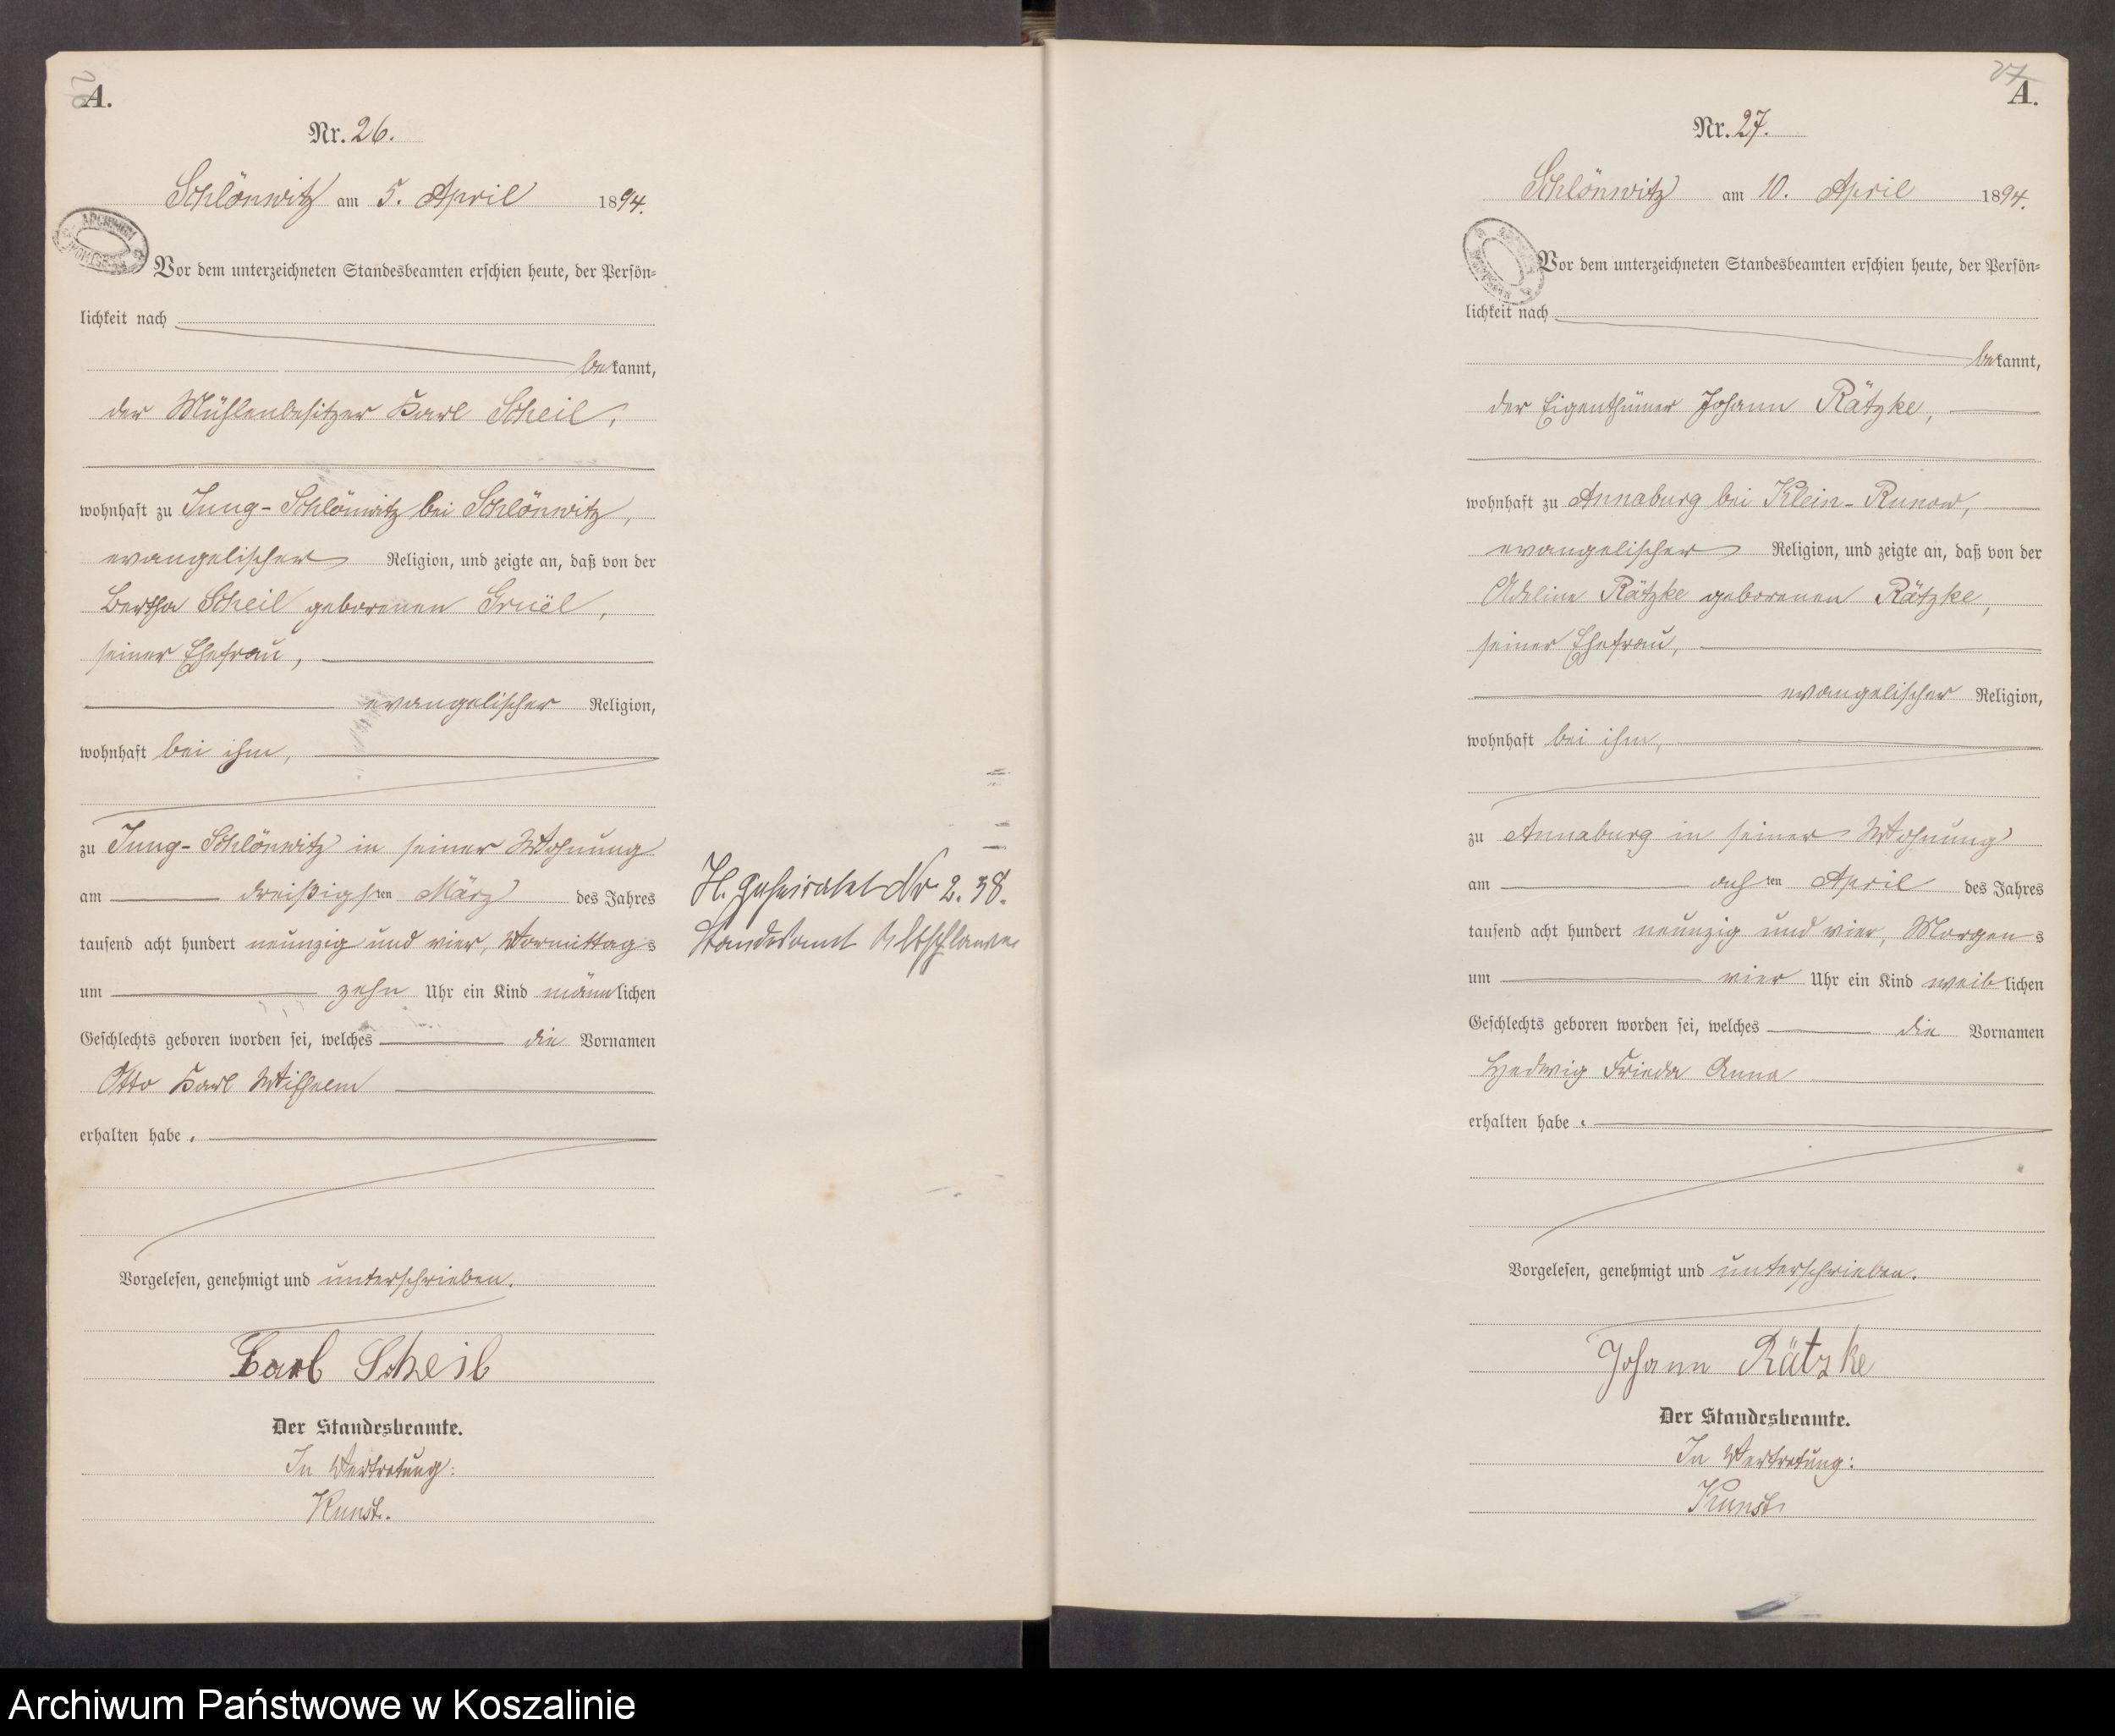 26
A.
Nr. 26.
Schlönwitz am 5. April 1894.
Vor dem unterzeichneten Standesbeamten erschien heute, der Persön-
lichkeit nach
bekannt,
der Mühlenbesitzer Karl Scheil,
wohnhaft zu Jung-Schlönwitz bei Schlönwitz,
evangelischer Religion, und zeigte an, daß von der
Bertha Scheil geborenen Gruël,
seiner Ehefrau,
evangelischer Religion,
wohnhaft bei ihm,
zu Jung-Schlönwitz in seiner Wohnung
am dreißigsten März des Jahres
tausend acht hundert neunzig und vier, Vormittags
um zehn Uhr ein Kind männlichen
Geschlechts geboren worden sei, welches die Vornamen
Otto Karl Wilhelm
erhalten habe.
Vorgelesen, genehmigt und unterschrieben.
Carl Scheil
Der Standesbeamte.
In Vertretung:
Kunst.
H. Geheiratet Nr 2. 38.
Standesamt Altschlawe
27
A.
Nr. 27.
Schlönwitz am 10. April 1894.
Vor dem unterzeichneten Standesbeamten erschien heute, der Persön-
lichkeit nach
bekannt,
der Eigenthümer Johann Rätzke,
wohnhaft zu Annaburg bei Klein-Runow,
evangelischer Religion, und zeigte an, daß von der
Adeline Rätzke geborenen Rätzke,
seiner Ehefrau,
evangelischer Religion,
wohnhaft bei ihm,
zu Annaburg in seiner Wohnung
am achten April des Jahres
tausend acht hundert neunzig und vier, Morgens
um vier Uhr ein Kind weiblichen
Geschlechts geboren worden sei, welches die Vornamen
Hedwig Frieda Anna
erhalten habe.
Vorgelesen, genehmigt und unterschrieben.
Johann Rätzke
Der Standesbeamte.
In Vertretung:
Kunst
Archiwum Państwowe w Koszalinie